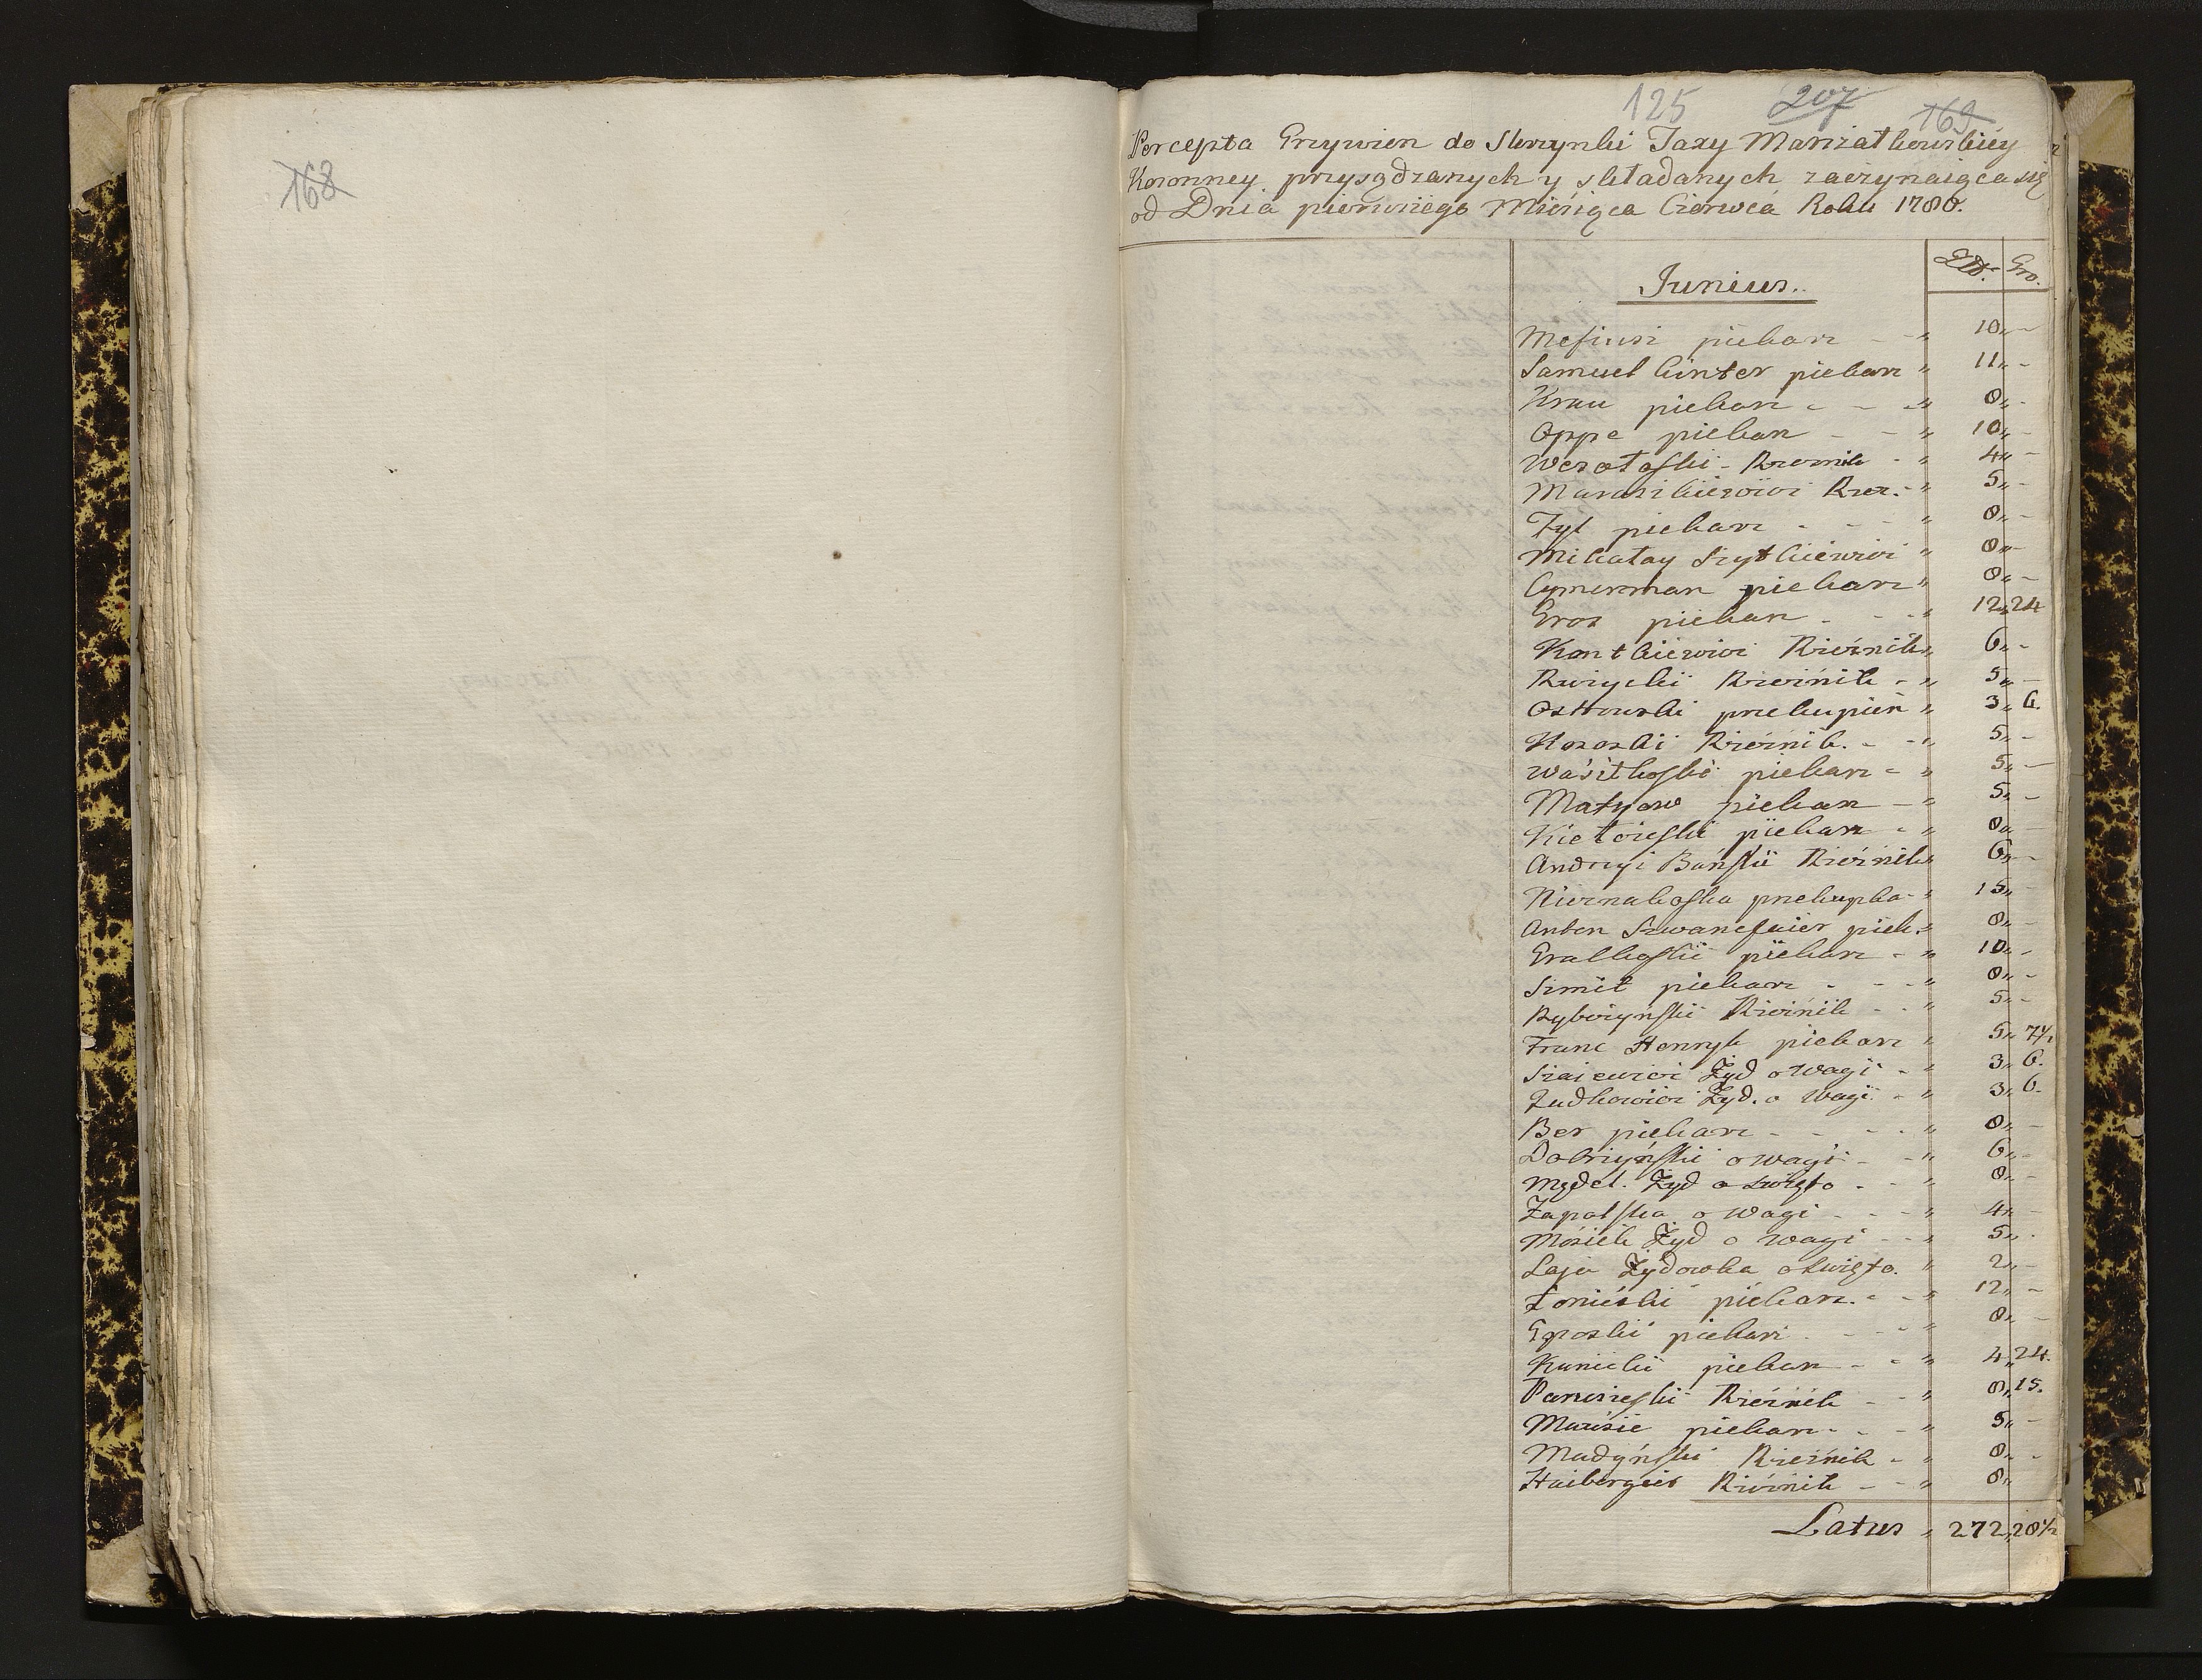 168
125 207 169
Percepta Grzywien do Skrzynki Taxy Marszałkowskiey
Koronney przysądzanych y składanych zaczynaiąca się
od Dnia pierwszego Miesiąca Czerwca Roku 1786.
Zło. Gro.
Junius.
piekarz - " 10 „ -
Samuel Ginter piekarz " 11 „ -
Krau piekarz - - " 8 „ -
Oppe piekarz - - " 10 „ -
Rzeznik - " 4 „ -
Rzez. - " 5 „ -
Tyl piekarz - - - " 8 „ -
Mikołay " 8 „ -
Cymerman piekarz " 8 „ -
Gros piekarz - - " 12 „ 24
Rzeźnik " 6 „ -
Rzeźnik - " 5 „ -
Ostrowski przekupień " 3 „ 6.
Rzeźnik. - - " 5 „ -
Waśilkoski piekarz - " 5 „ -
Matyow piekarz - " 5 „ -
piekarz - " 8 „ -
Andrzyi Bański Rzeźnik " 6 „ -
przekupka - " 15 „ -
Anton piek. " 8 „ -
Gralkoski piekarz - " 10 „ -
Szmit piekarz - - - " 8 „ -
Rybczyński Rzeźnik - - " 5 „ -
Franc Henryk piekarz " 5 „ 7½
Szaiewicz Żyd o wagi - " 3 „ 6.
Judkowicz Żyd. o wagi - " 3 „ 6.
Ber piekarz - - - - " 8 „ -
Dobrzyński o wagi - - " 6 „ -
Żyd o święto - - " 8 „ -
Zapolska o wagi - - - " 4 „ -
Mosiek Żyd o wagi - - " 5 „ -
Laja Żydowka o święto. " 2 „ -
piekarz. - - " 12 „ -
piekarz - - - " 8 „ -
Kunicki piekarz - - " 4 „ 24.
Rzeźnik - " 8 „ 15.
piekarz - - - " 5 „ -
Madyński Rzeźnik - " 8 „ -
Haibergier Rzeźnik - - " 8 „
Latus " 272 „ 28½